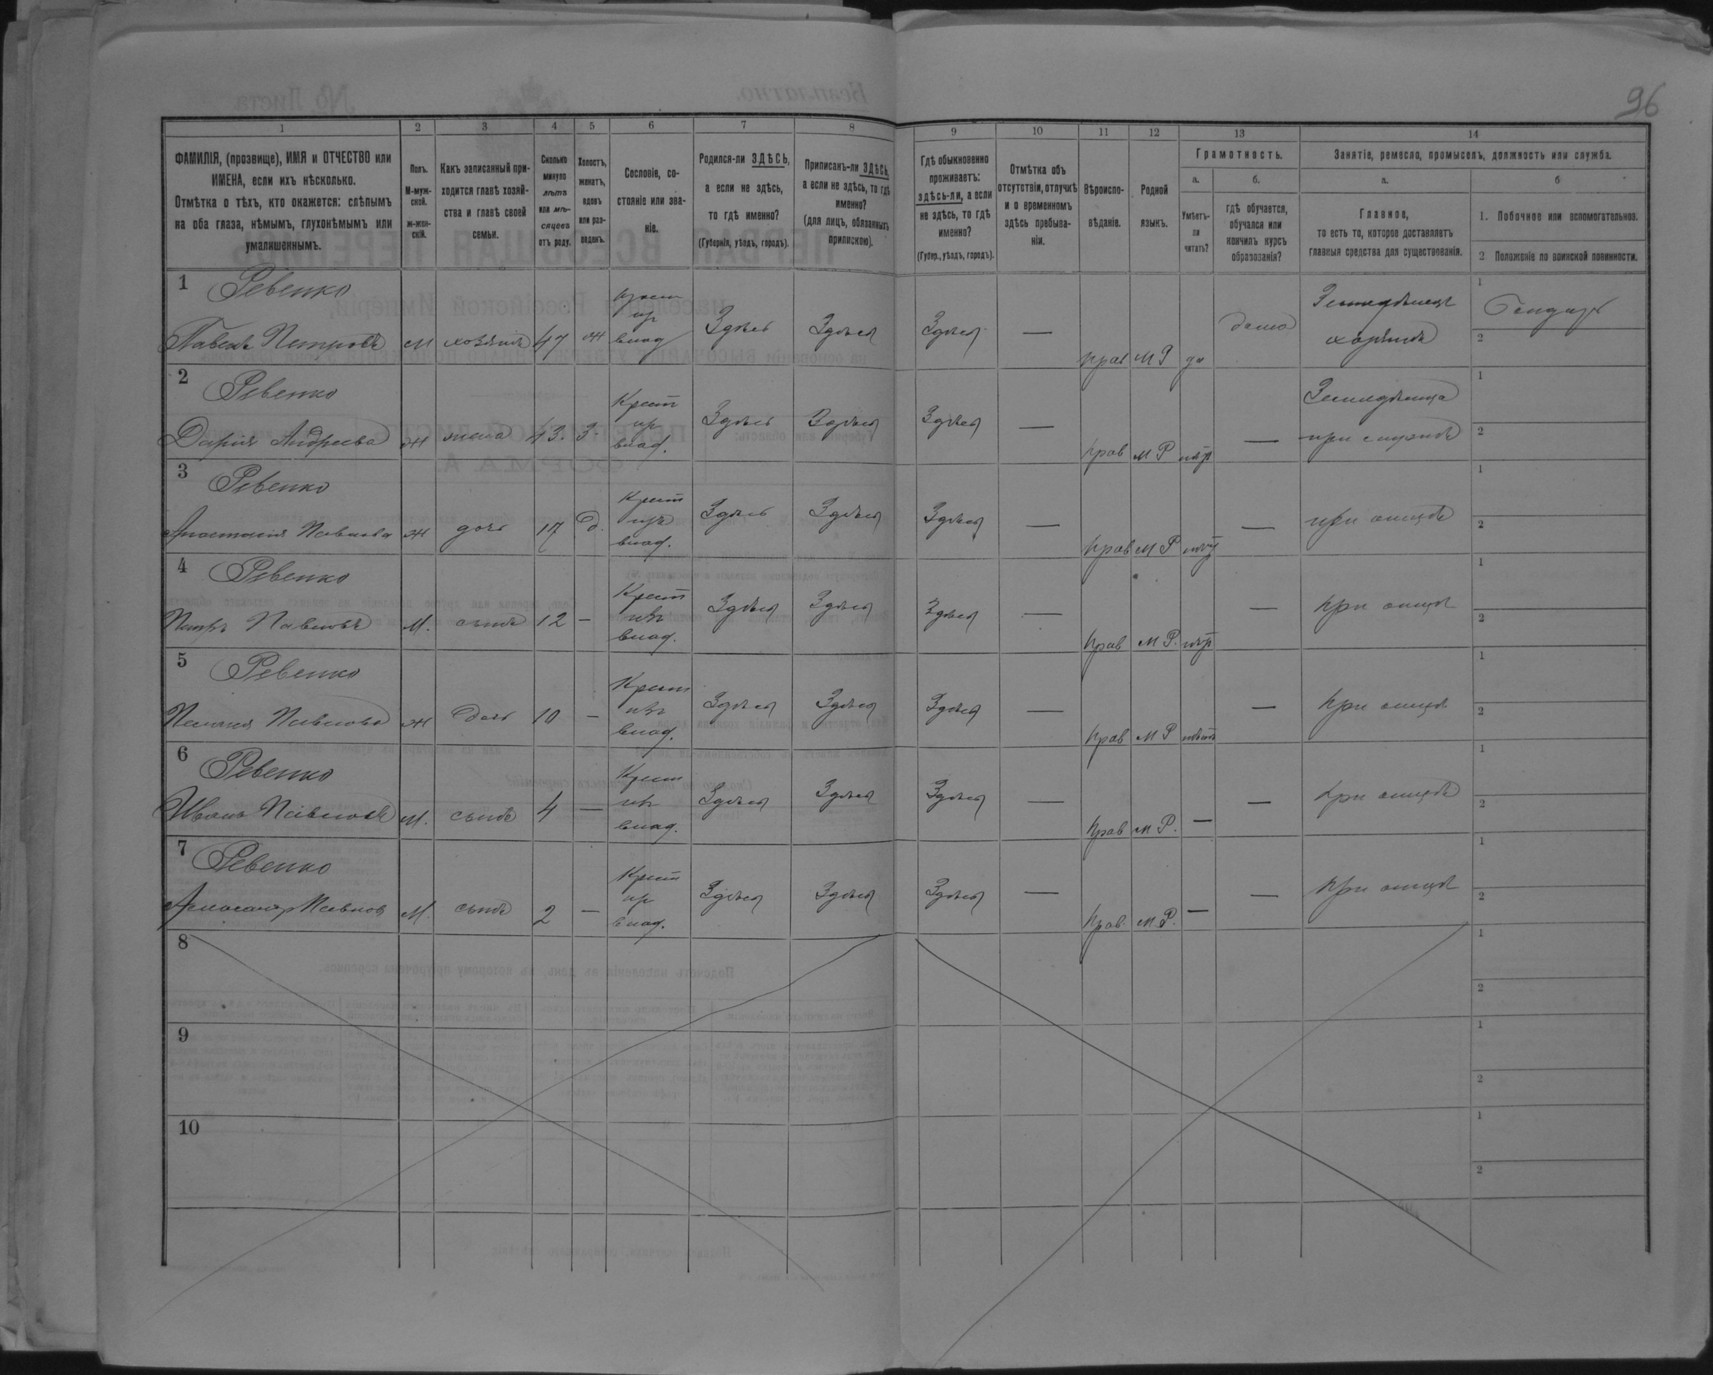 96
1 2 3 4 5 6 7 8 9 10 11 12 13 14
ФАМИЛІЯ, (прозвище), ИМЯ и ОТЧЕСТВО или
ИМЕНА, если ихъ нѣсколько.
Отмѣтка о тѣхъ, кто окажется: слѣпымъ
на оба глаза, нѣмымъ, глухонѣмымъ или
умалишеннымъ.
Полъ.
М-муж-
ской.
Ж-жен-
скій.
Какъ записанный при-
ходится главѣ хозяй-
ства и главѣ своей
семьи.
Сколько
минуло
лѣтъ
или мѣ-
сяцевъ
отъ роду.
Холостъ,
женатъ,
вдовъ
или раз-
веденъ.
Сословіе, со-
стояніе или зва-
ніе.
Родился-ли ЗДѢСЬ,
а если не здѣсь,
то гдѣ именно?
(Губернія, уѣздъ, городъ).
Приписанъ-ли ЗДѢСЬ,
а если не здѣсь, то гдѣ
именно?
(для лицъ, обязанныхъ
припискою).
Гдѣ обыкновенно
проживаетъ:
здѣсь-ли, а если
не здѣсь, то гдѣ
именно?
(Губер., уѣздъ, городъ).
Отмѣтка объ
отсутствіи, отлучкѣ
и о временномъ
здѣсь пребыва-
ніи.
Вѣроиспо-
вѣданіе.
Родной
языкъ.
Грамотность.
а.
Умѣетъ-
ли
читать?
б.
гдѣ обучается,
обучался или
кончилъ курсъ
образованія?
Занятіе, ремесло, промыселъ, должность или служба.
а.
Главное,
то есть то, которое доставляетъ
главныя средства для существованія.
б
1. Побочное или вспомогательное.
2 Положеніе по воинской повинности.
1 Ревенко
Павелъ Петровъ м хозяинъ 47 ж Крест из влад Здѣсь Здѣсь Здѣсь — Прав М Р да дома Земледѣлецъ хозяинъ 1 2
2 Ревенко
Дарія Андреева ж жена 43. З. Крест из влад. Здѣсь Здѣсь Здѣсь — Прав М Р нѣт — Земледѣлица при мужѣ 1 2
3 Ревенко
Анастасия Павлова ж дочь 17 д. Крест изъ влад. Здѣсь Здѣсь Здѣсь — Прав М Р нѣт — при отцѣ 1 2
4 Ревенко
Петръ Павловъ М. сынъ 12 — Крест изъ влад. Здѣсь Здѣсь Здѣсь — Прав М Р. нѣт — при отцѣ 1 2
5 Ревенко
Павлова ж дочь 10 — Крест изъ влад. Здѣсь Здѣсь Здѣсь Прав М Р нѣтъ — при отцѣ 1 2
6 Ревенко
Иванъ Павловъ М. сынъ 4 — Крест изъ влад. Здѣсь Здѣсь Здѣсь — Прав М Р. — — при отцѣ 1 2
7 Ревенко
Павлов М. сынъ 2 — Крест из влад. Здѣсь Здѣсь Здѣсь — Прав. М Р. — — при отцѣ 1 2
8 1 2
9 1 2
10 1 2